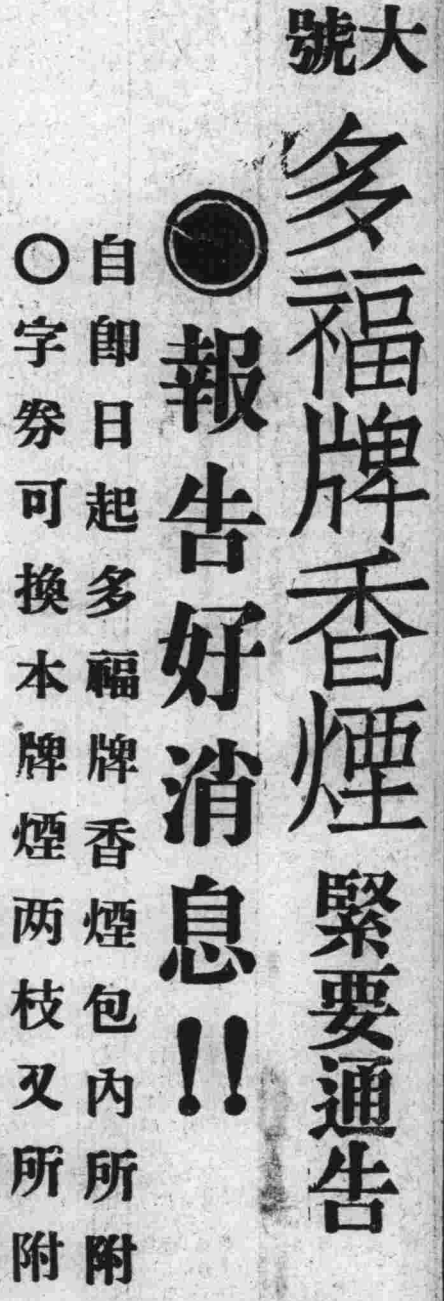 大號
多福牌香煙
緊要通告
●報告好消息!!
自即日起多福牌香煙包內所附
○字券可換本牌煙两枝又所附